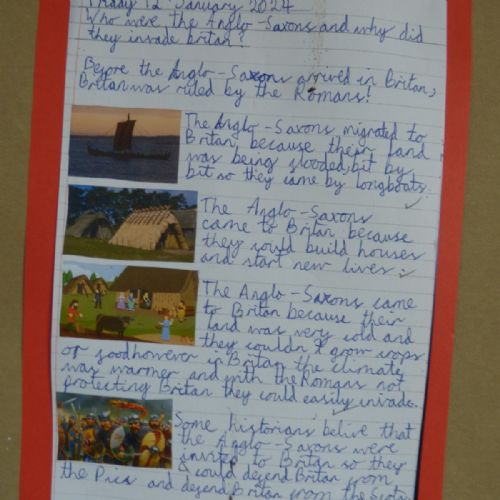 Friday 12 January 2024
Who were the Anglo-Saxons and why did
they invade britan?
Before the Anglo-Saxons arrived in Britan,
Britan was ruled by the Romans!
The Anglo-Saxons migrated to
Britan, because their land
was being flooded bit by
bit so they came by longboats.
The Anglo-Saxons
came to Britan because
they could build houses
and start new lives.
The Anglo-Saxons came
to Britan because their
land was very cold and
they couldn't grow crops
or food however in Britan the climate
was warmer and with the Romans not
protecting Britan they could easily invade.
Some historians belive that
the Anglo-Saxons were
invited to Britan so they
could defend Britan from
the Pics and defend Britan from the